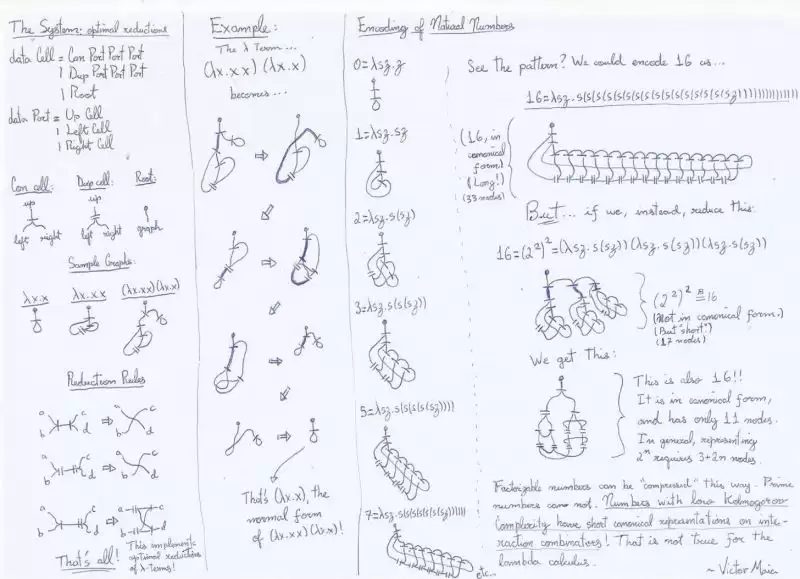 The System: optimal reductions
data Cell = Con Port Port Port
| Dup Port Port Port
| Root
data Port = Up Cell
| Left Cell
| Right Cell
Con cell:
up
left right
Dup cell:
up
left right
Root:
graph
Sample Graphs:
λx.x
λx.xx
(λx.xx)(λx.x)
Reduction Rules
a c
b d
a c
b d
a c
b d
a c
b d
a c
b d
a c
b d
That's all!
This implements
optimal reductions
of λ-terms!
Example:
The λ Term...
(λx.x x) (λx.x)
becomes...
That's (λx.x), the
normal form
of (λx.xx)(λx.x)!
Encoding of Natural Numbers
0=λsz.z
1=λsz.sz
2=λsz.s(sz)
3=λsz.s(s(sz))
5=λsz.s(s(s(s(sz))))
7=λsz.s(s(s(s(s(s(sz))))))
etc...
See the pattern? We could encode 16 as...
16=λsz.s(s(s(s(s(s(s(s(s(s(s(s(s(s(s(sz)))))))))))))))
(16, in
canonical
form)
(Long!)
(33 nodes)
But... if we, instead, reduce this:
16=(2²)²=(λsz.s(sz))(λsz.s(sz))(λsz.s(sz))
(2²)² ≟ 16
(Not in canonical form.)
(But "short")
(17 nodes)
We get this:
This is also 16!!
It is in canonical form,
and has only 11 nodes.
In general, representing
2ⁿ requires 3+2n nodes.
Factorizable numbers can be "compressed" this way. Prime
numbers can not. Numbers with low Kolmogorov
Complexity have short canonical representations on inte-
raction combinators! That is not true for the
lambda calculus.
~ Victor Maia